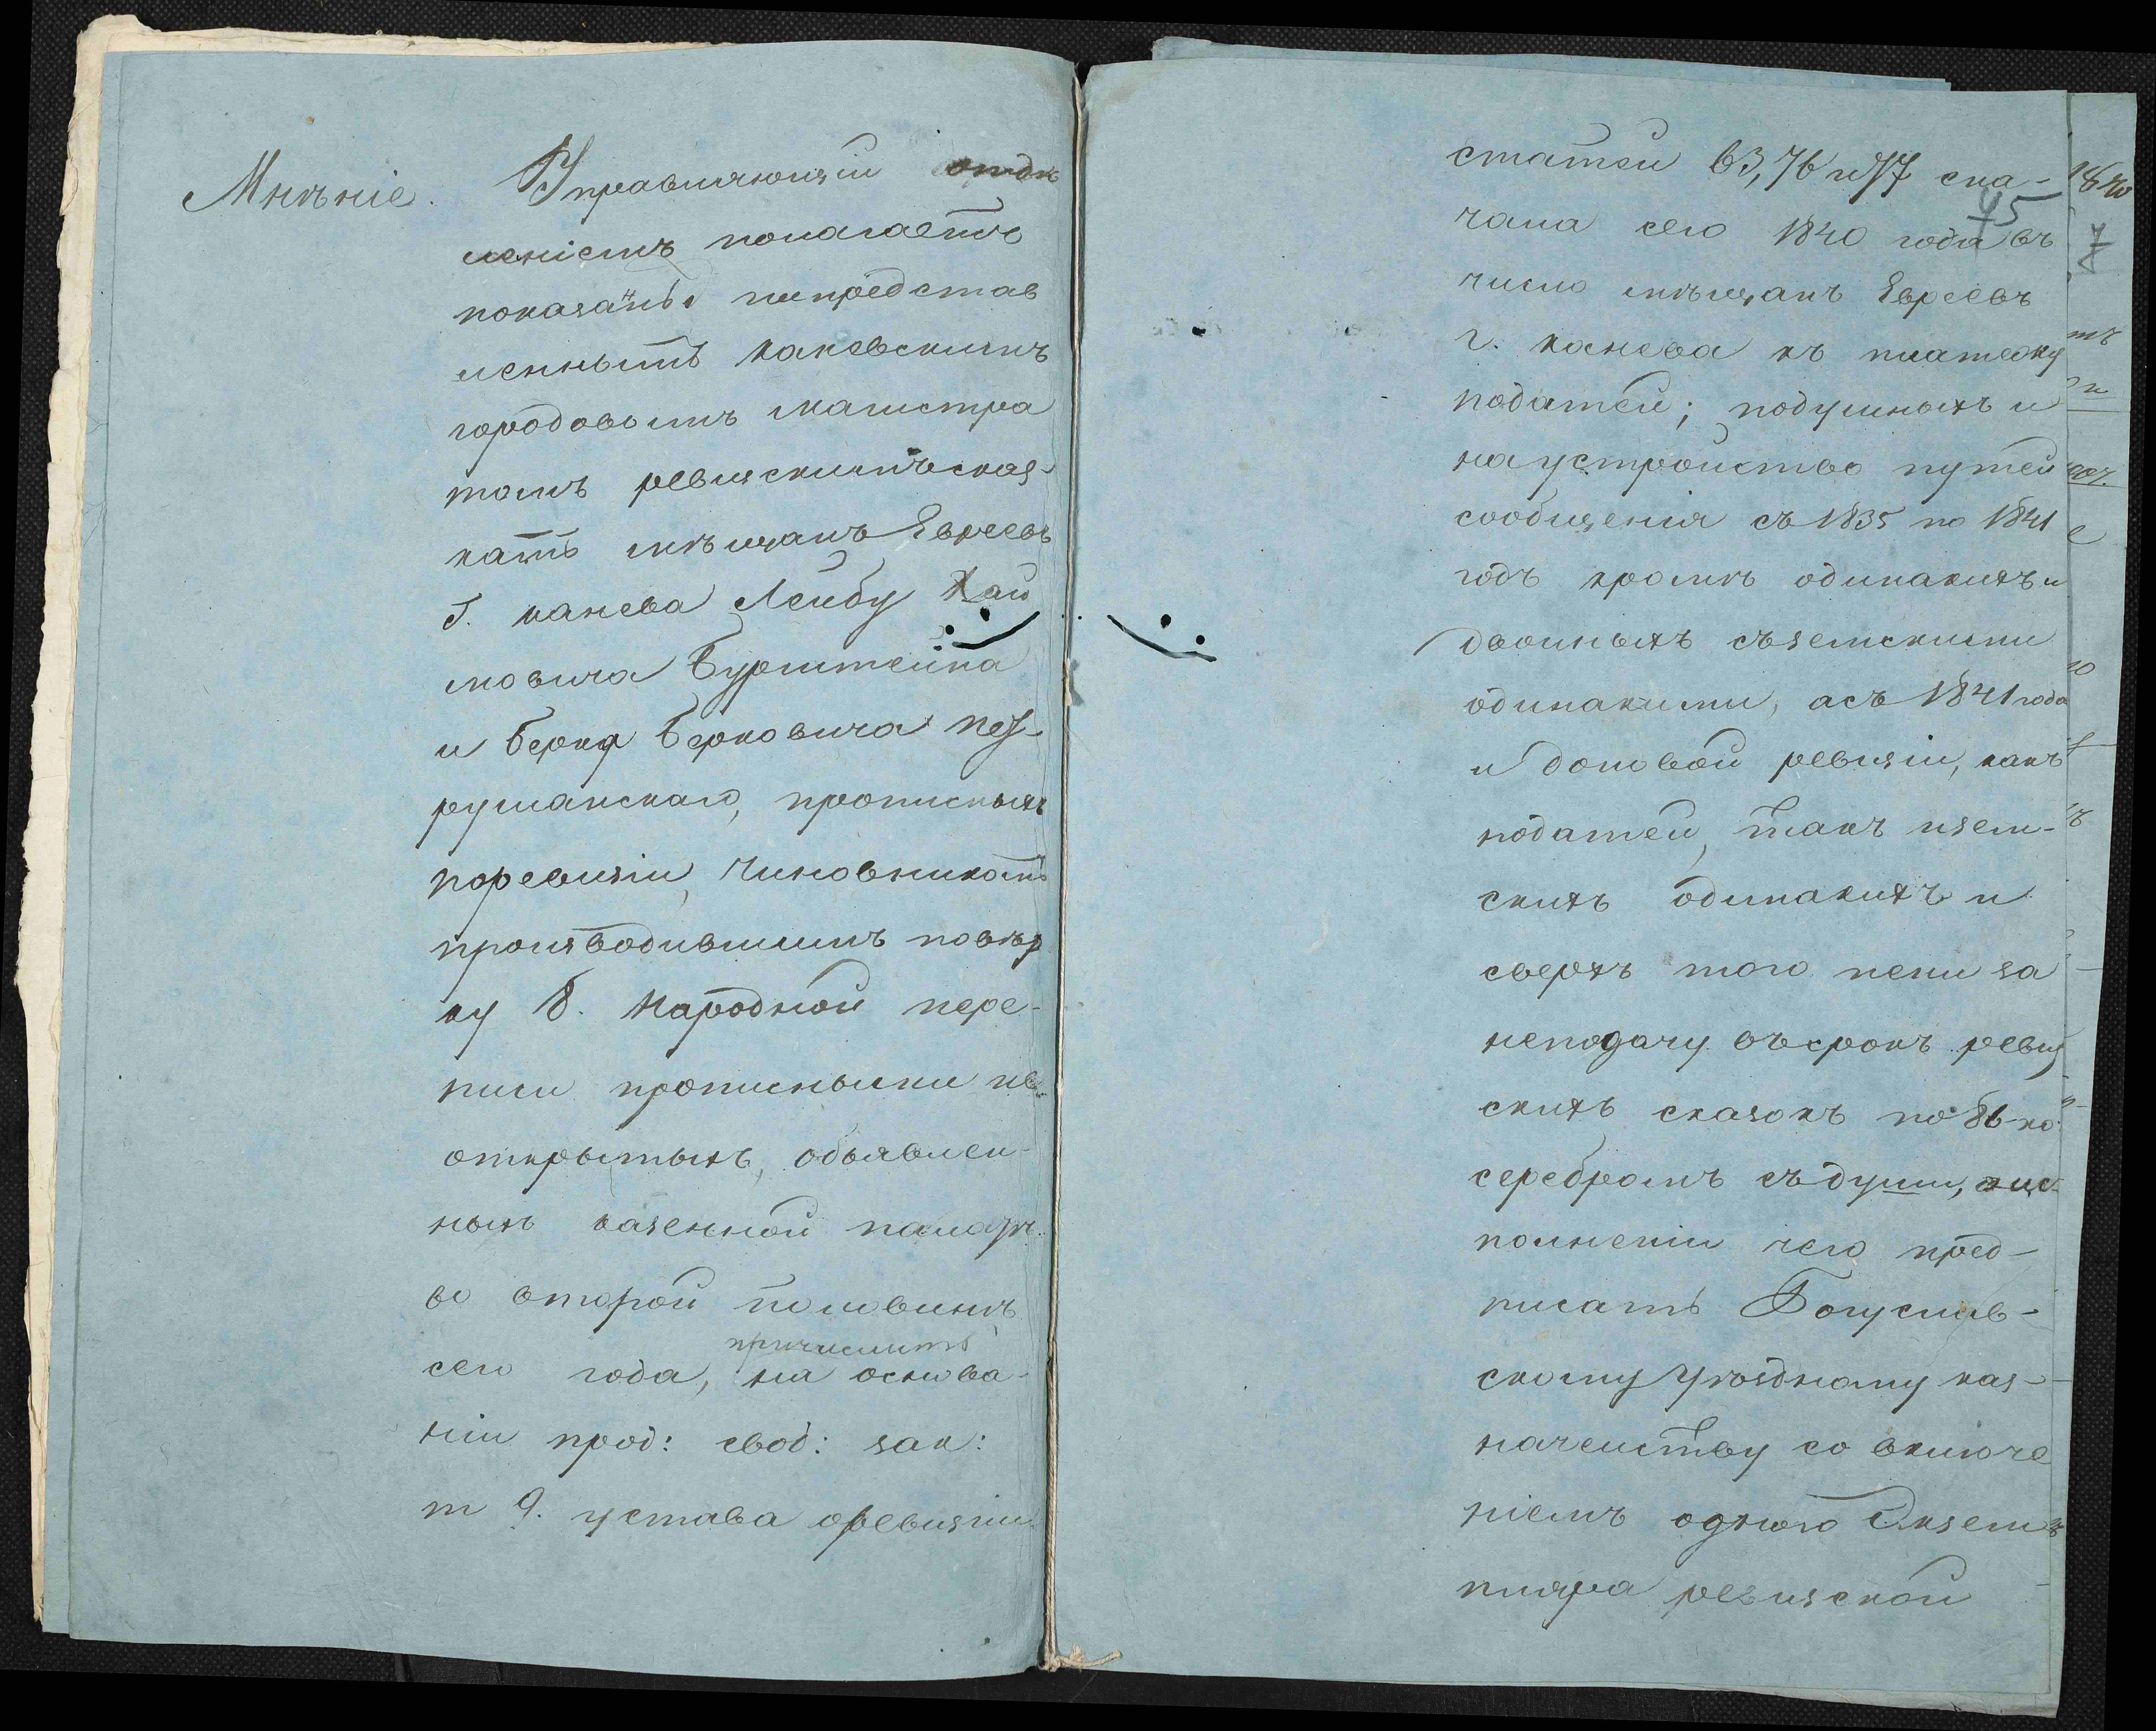 Мнѣніе.
Управляющій отдѣ
леніемъ полагаетъ
показаны попредстав
леннымъ каневскимъ
городовымъ магистра
томъ ревизскимъ сказ-
камъ мѣщанъ Евреевъ
Г. канева Лейбу Хаи
мовича Бурштейна
и Берка Берковича пеѣ-
руманскаго, прописныхъ
поревизіи, чиновникомъ
производившимъ повѣр
ку 8. Народной пере-
писи прописными не
открытыхъ, объявлен-
ныхъ казенной палатѣ
во второй половинѣ
причислить
сего года, на основа-
ніи прод: свод: зак:
т 9. устава оревизіи
статей 63, 76 и 77 сна-
45
чала сего 1840 года въ
число мѣщанъ Евреевъ
г. канева къ платежу
податей; подушныхъ и
наустройство путей
сообщенія съ 1835 по 1841
годъ кромѣ одинакихъ и
двойныхъ съземскими
одинакими, асъ 1841 года
и доновой ревизіи, какъ
податей, такъ изем-
скихъ одинакихъ и
сверхъ того пени за
неподачу въсрокъ ревиз
скихъ сказокъ по 86 ко
серебромъ съдуши, оис-
полненіи чего пред-
писать Богуслав-
скому Уѣздному каз-
начейству со включе
ніемъ одного Экзем
пляра ревизской